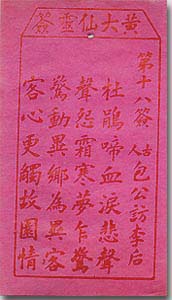 黃大仙靈簽
第十八簽 古人 包公訪李后
杜鵑啼血淚悲聲
聲怨霜寒夢乍驚
驚動異鄉為異客
客心更觸故園情